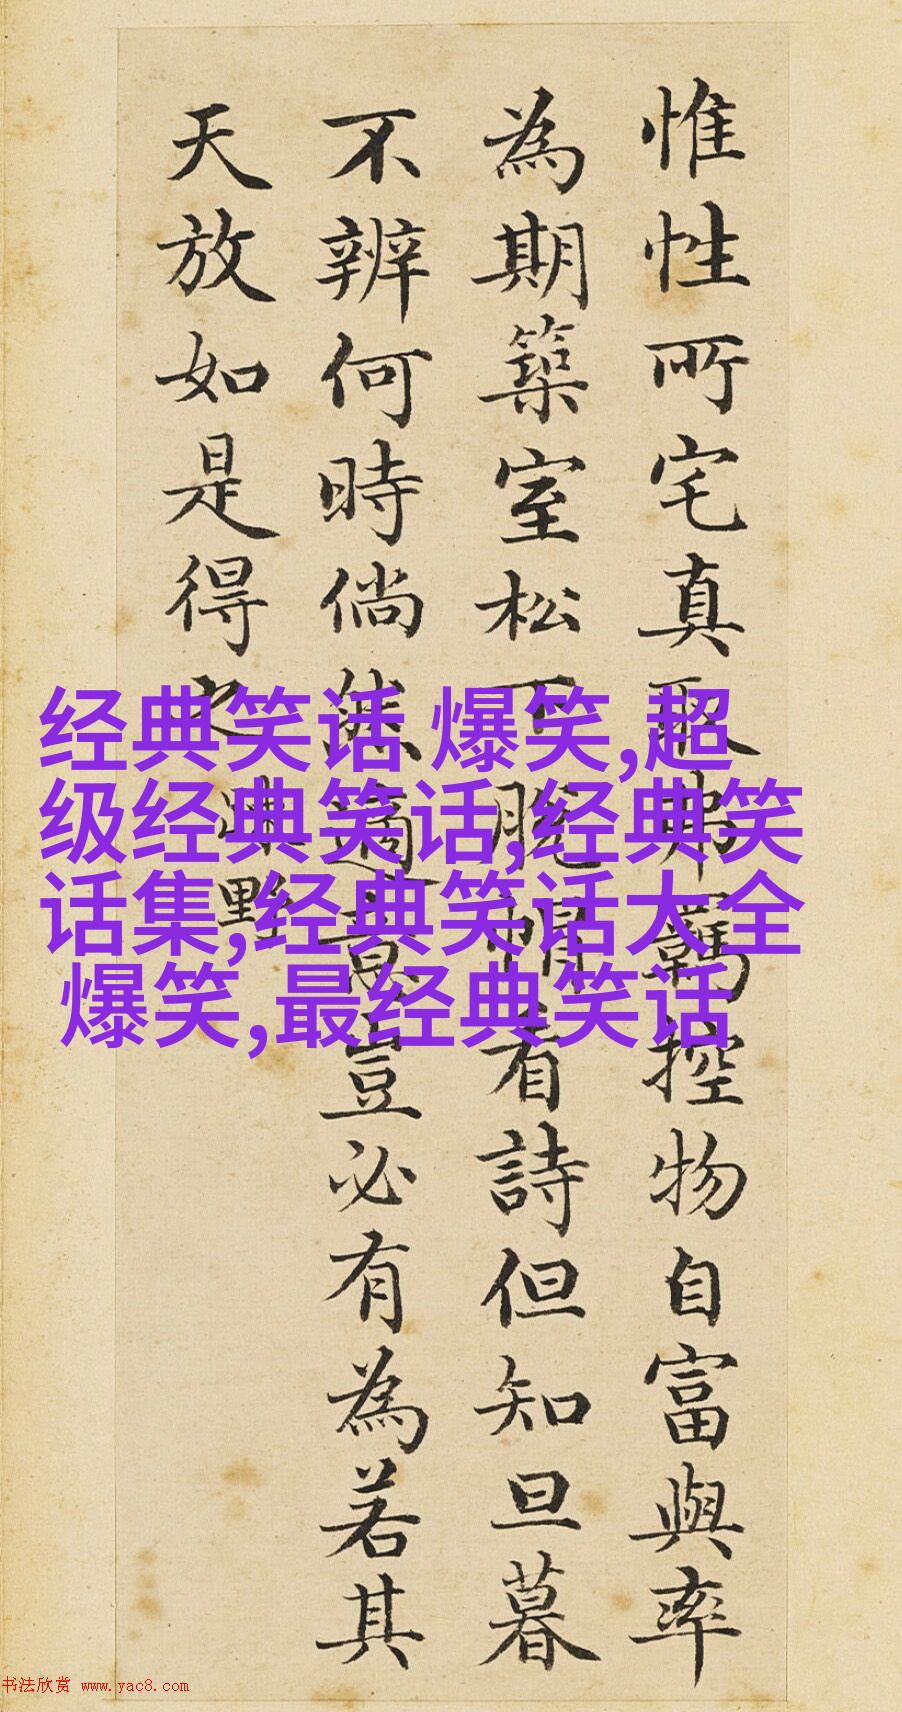 惟性所宅真取弗羈控物自富與率
為期築室松下脫帽看詩但知旦暮
不辨何時倘然適意豈必有為若其
天放如是得之
疎野
经典笑话 爆笑,超
级经典笑话,经典笑
话集,经典笑话大全
爆笑,最经典笑话
书法欣赏 www.yac8.com